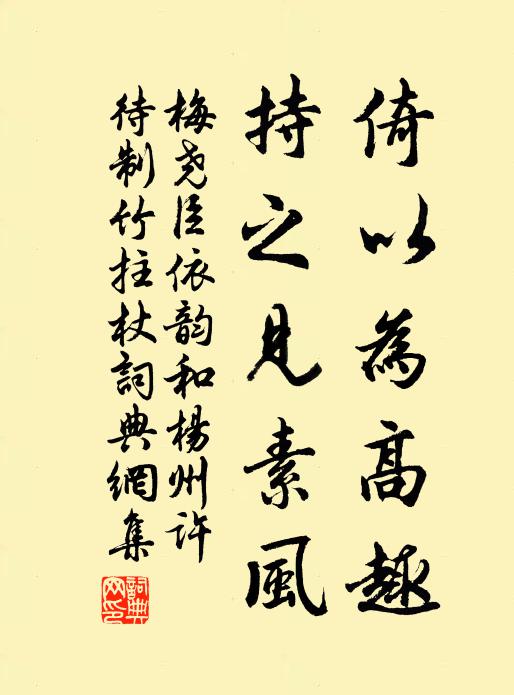 倚以為高趣
持之見素風
梅堯臣依韵和楊州許
待制竹拄杖詞典網集
詞典網印